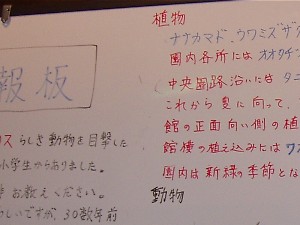 報板
リスらしき動物を目撃した
小学生からありました。
お教えください。
しいですが、30数年前
植物
ナナカマド、ウワミズザ
園内各所には オオタチ
中央園路沿いには タニ
これから 夏に 向って、
館の正面向い側の植
館横の植え込みには ウ
園内は新緑の季節とな
動物